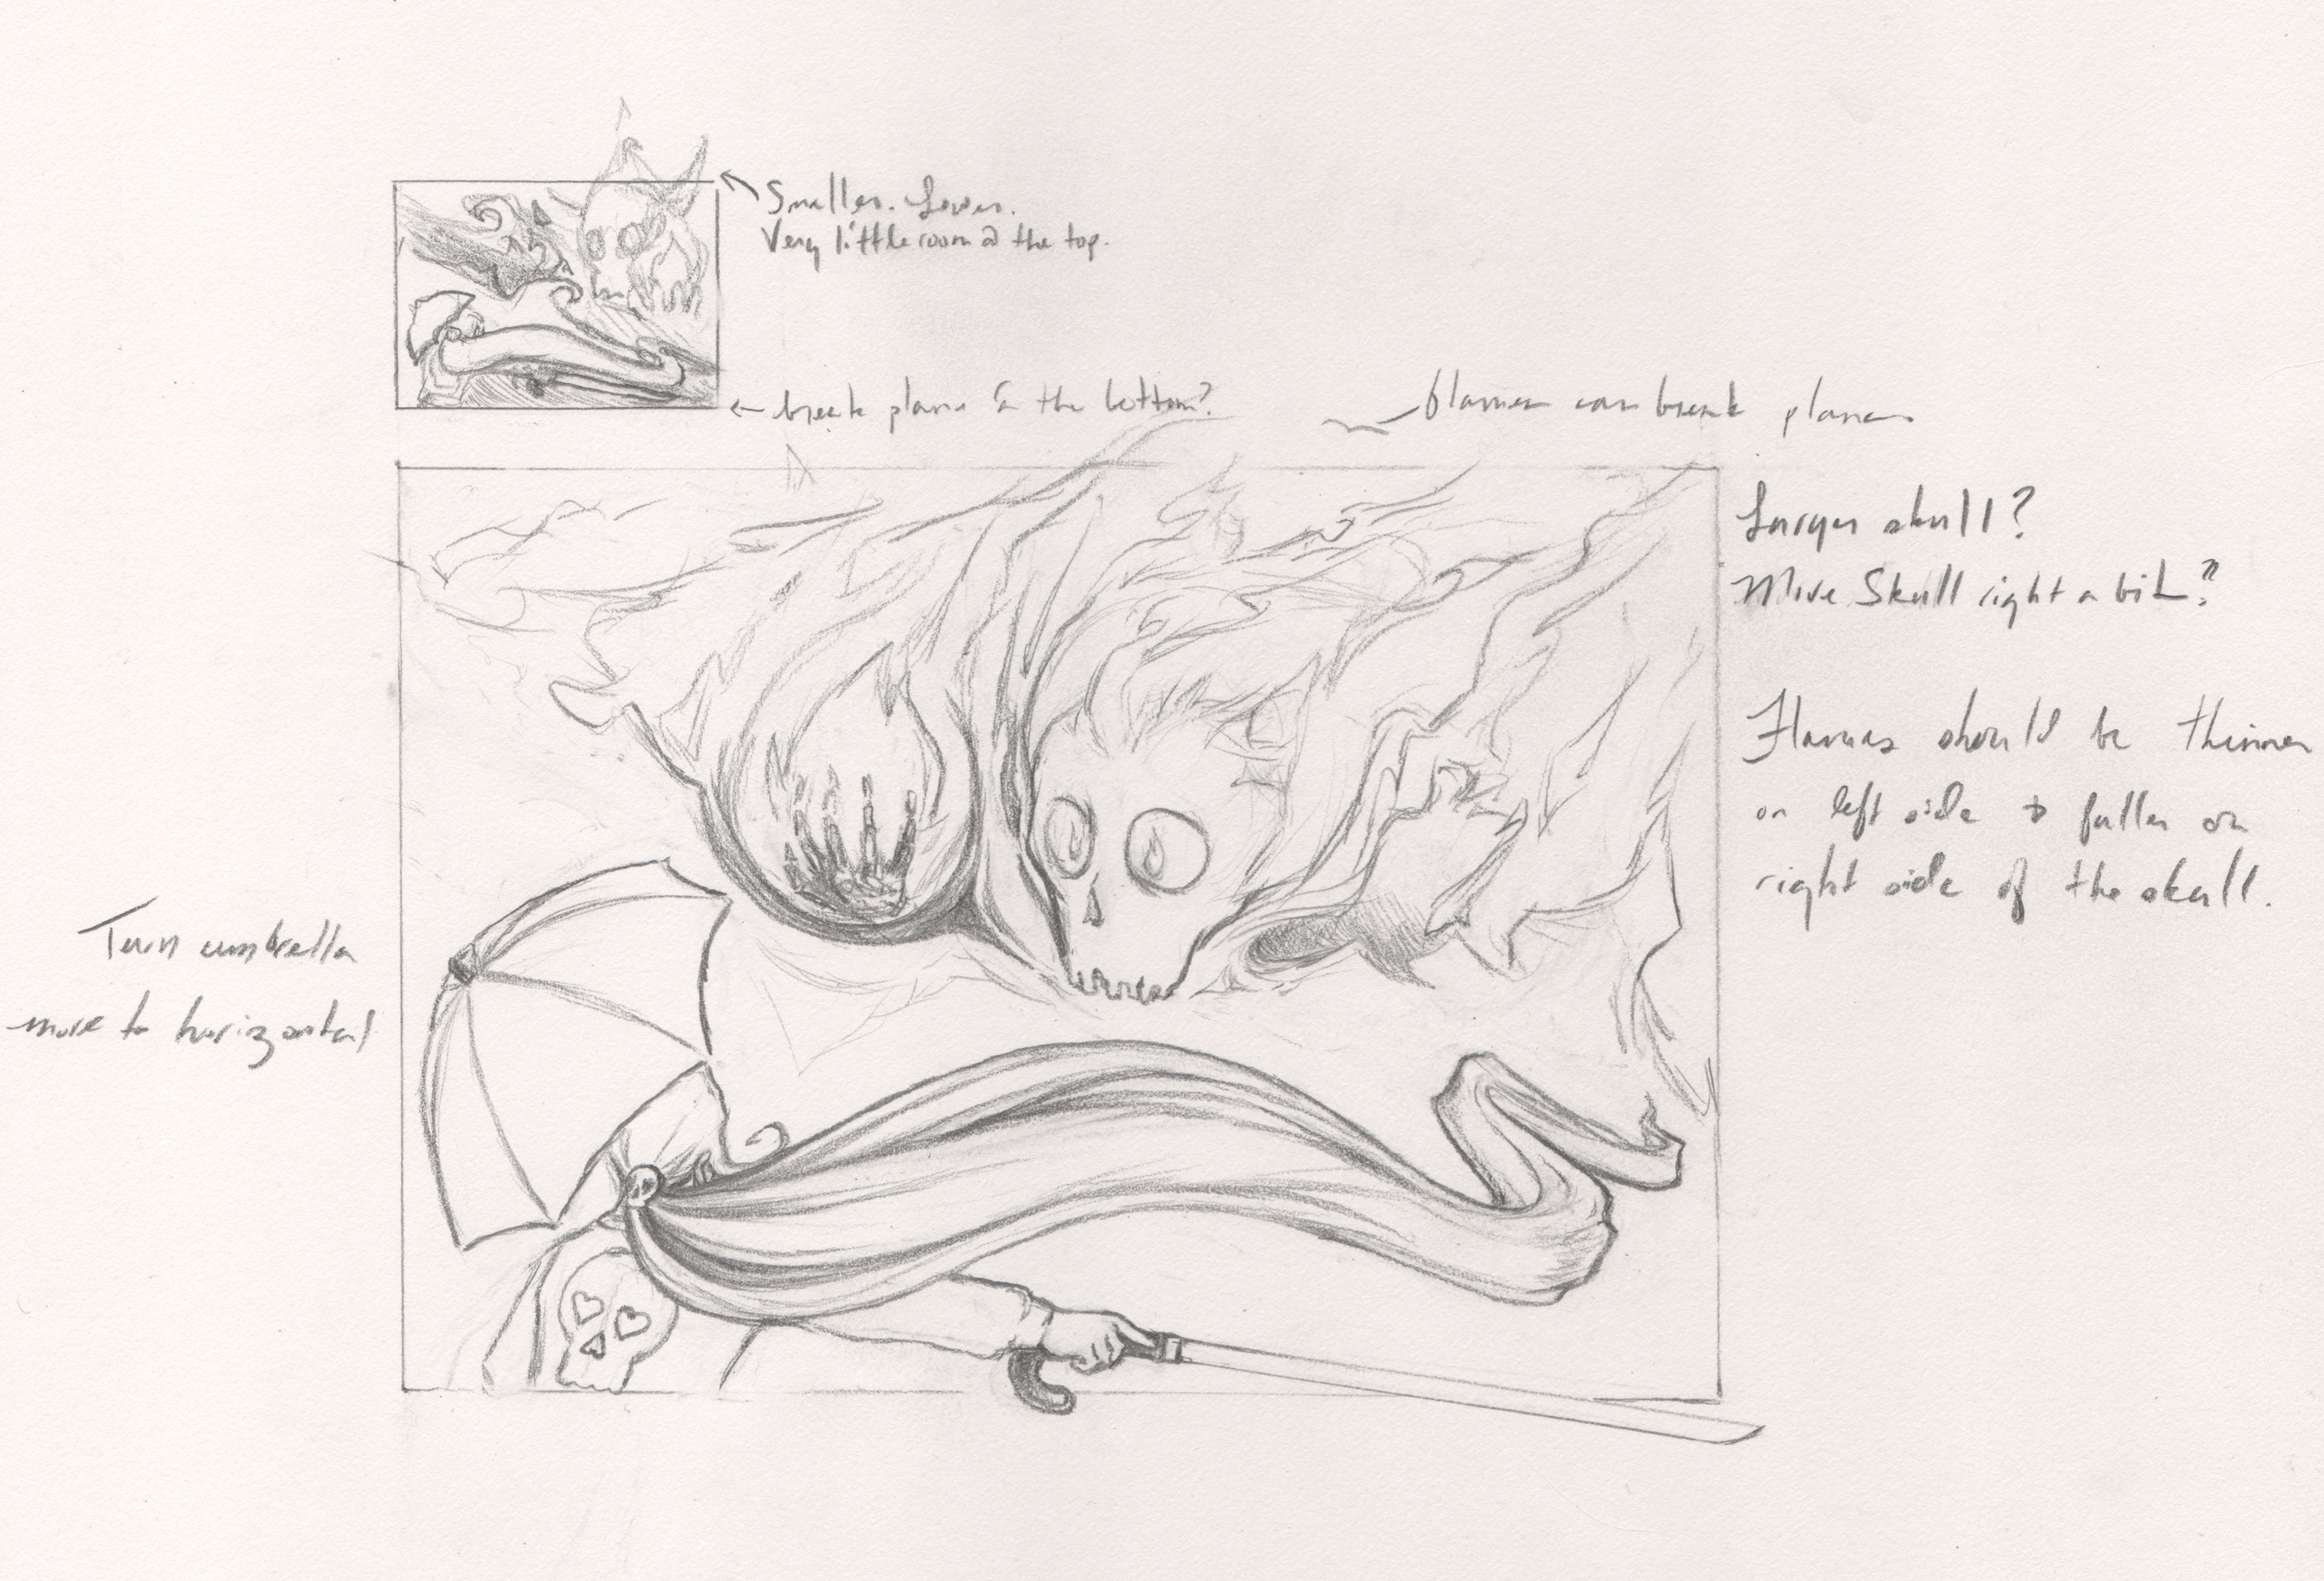 Smaller. Lower.
Very little room @ the top.
break plane @ the bottom?
flames can break plane
Larger skull?
Move Skull right a bit?
Flames should be thinner
on left side & fuller on
right side of the skull.
Turn umbrella
more to horizontal